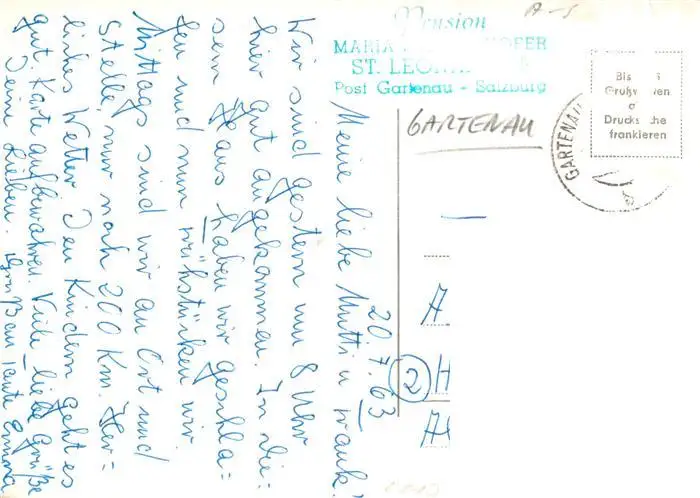 A-S
Pension
MARIA HOFER
ST. LEON
Post Gartenau - Salzburg
GARTENAU
Bis 5
Grußw en
o
Drucks che
frankieren
GARTENAU
20.7.63
Meine liebe Mutti u. Frank!
Wir sind gestern um 8 Uhr
hier gut angekommen. In die=
sem Haus haben wir geschla=
fen und nun frühstücken wir.
Mittags sind wir an Ort und
Stelle, nur noch 200 Km. Herr=
liches Wetter. Den Kindern geht es
gut. Karte aufbewahren. Viele liebe Grüße
Deine Lieben. Gruß an Tante Emma
A
2 H
A